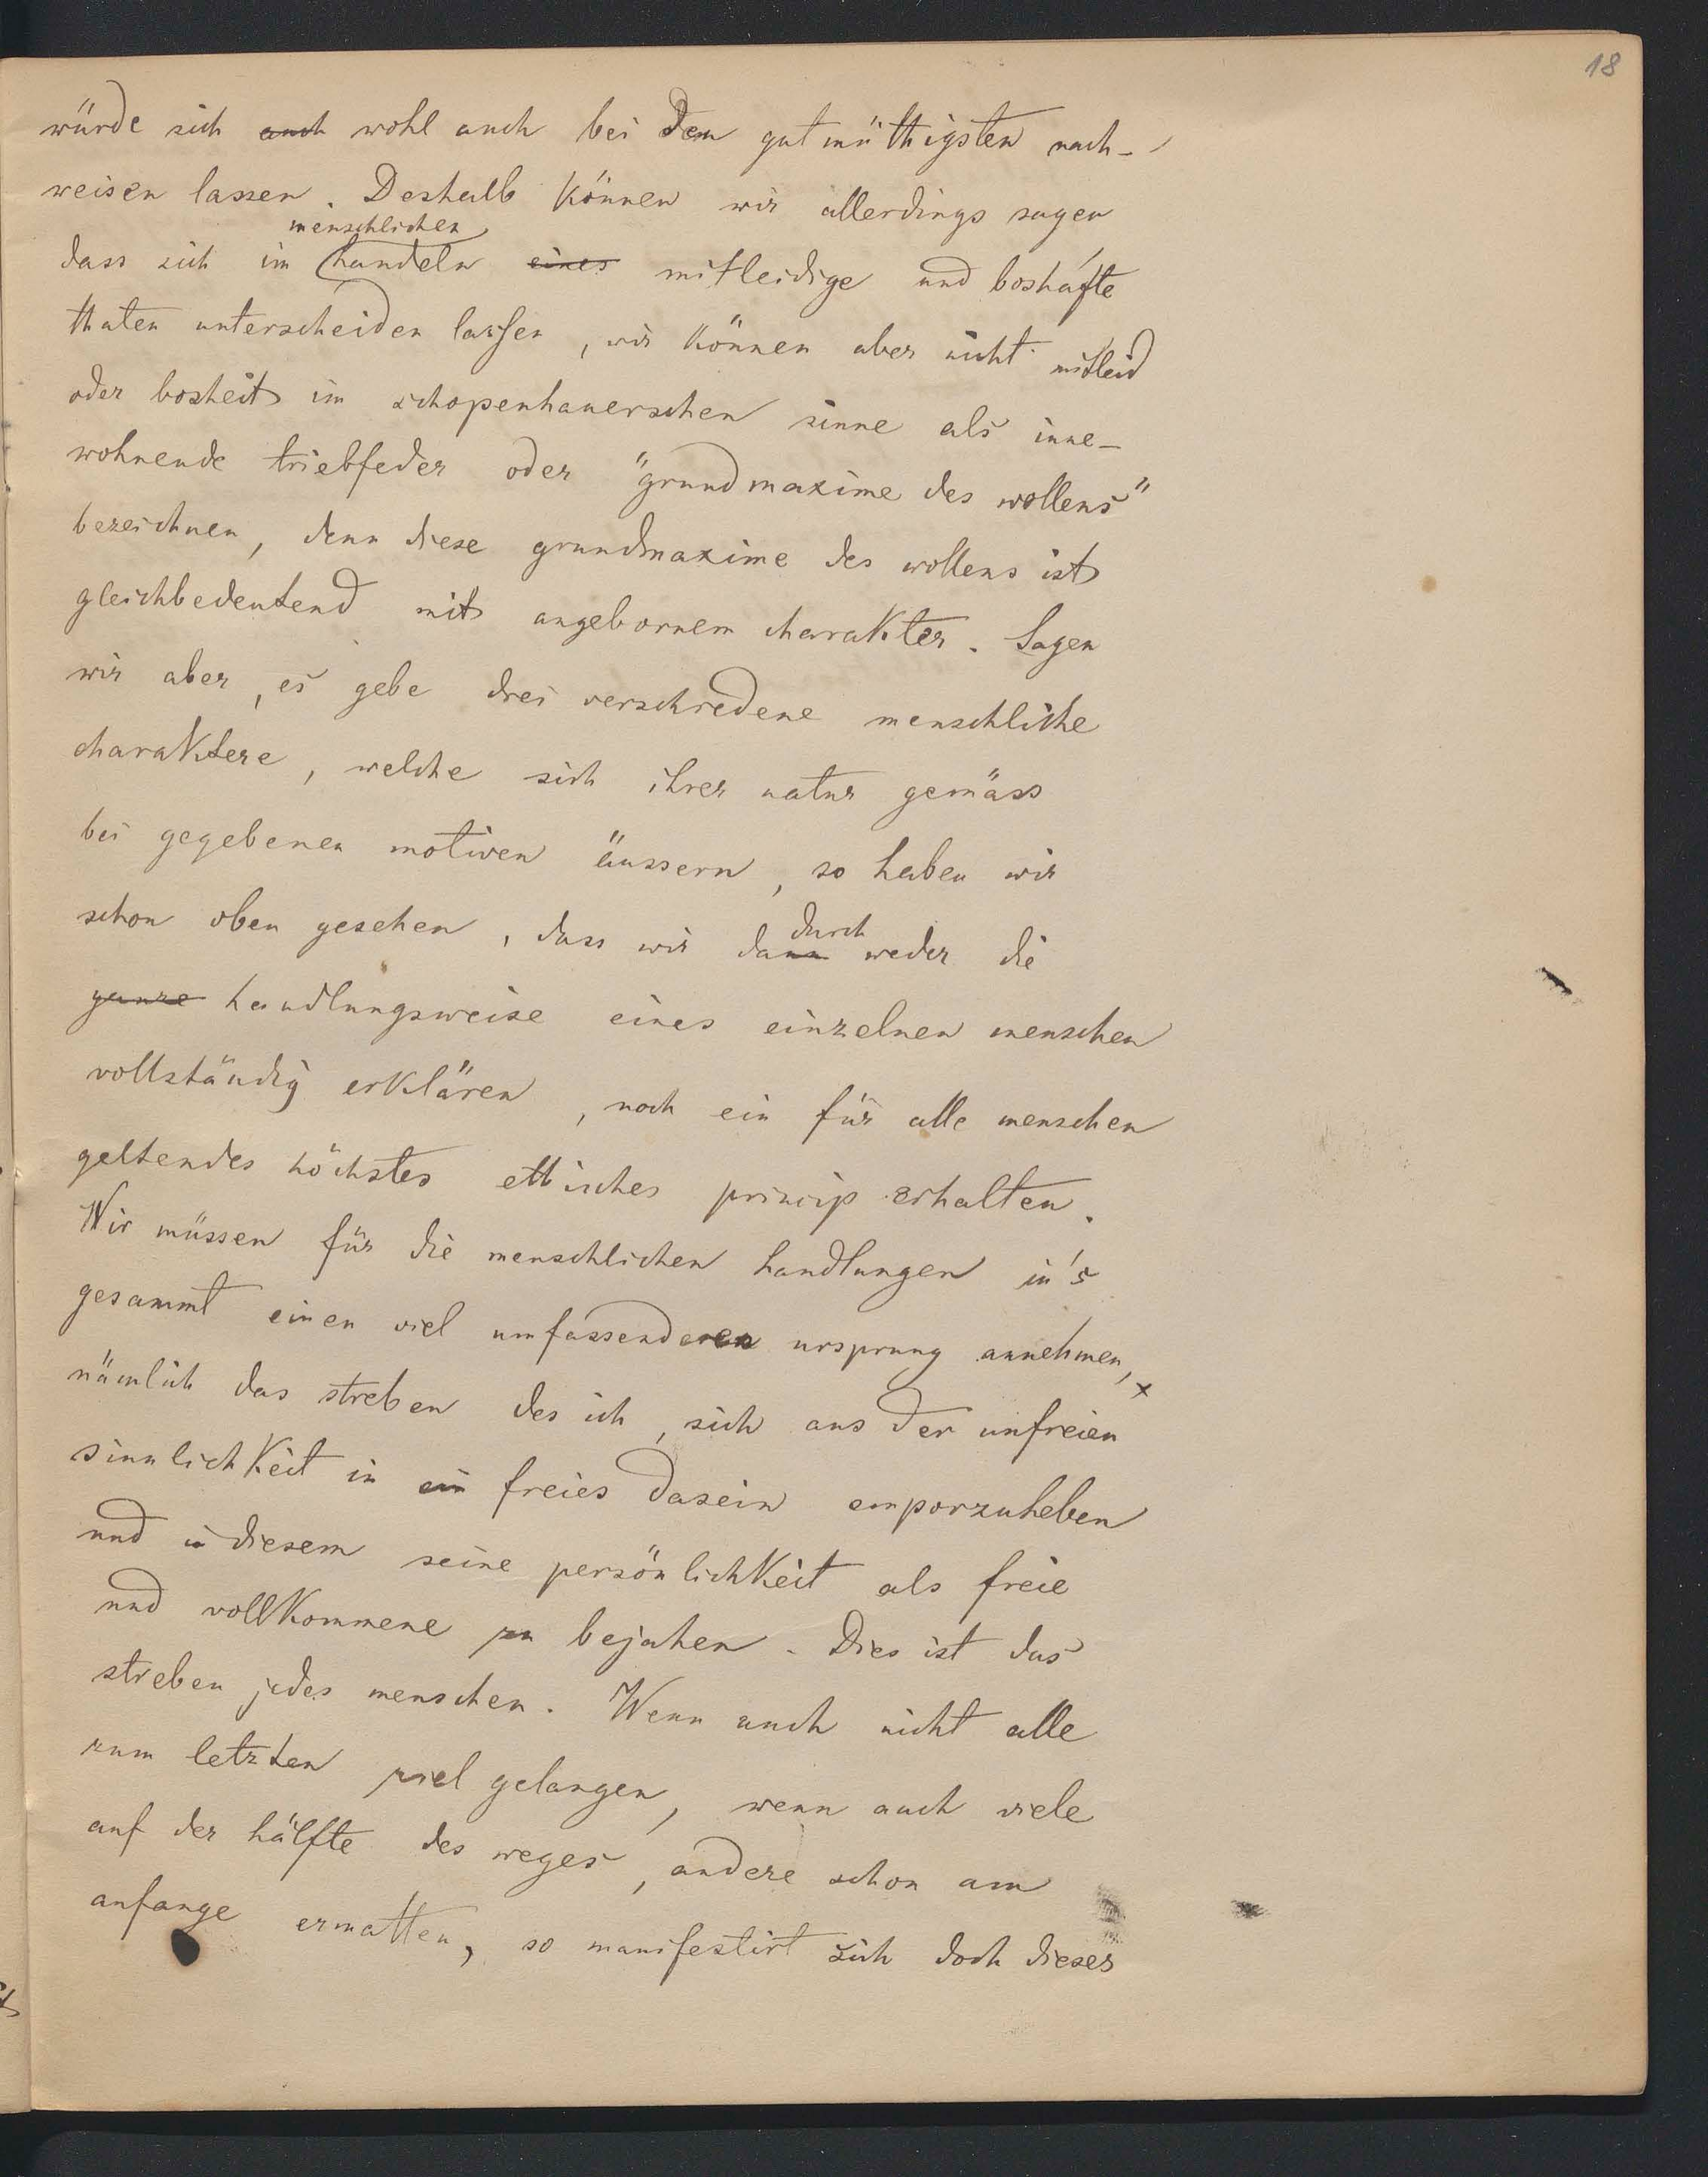 18
würde sich auch wohl auch bei dem gutmüthigsten nach-
weisen lassen. Deshalb können wir allerdings sagen
menschlichen
dass sich im handeln eines mitleidige und boshafte
thaten unterscheiden lassen, wir können aber nicht mitleid
oder bosheit im schopenhauerschen sinne als inne-
wohnende triebfeder oder "grundmaxime des wollens"
bezeichnen, denn diese grundmaxime des wollens ist
gleichbedeutend mit angebornem charakter. Sagen
wir aber, es gebe drei verschiedene menschliche
charaktere, welche sich ihrer natur gemäss
bei gegebenen motiven äussern, so haben wir
durch
schon oben gesehen, dass wir dann weder die
ganze handlungsweise eines einzelnen menschen
vollständig erklären, noch ein für alle menschen
geltendes höchstes ethisches princip erhalten.
Wir müssen für die menschlichen handlungen in's
gesammt einen viel umfassenderen ursprung annehmen, x
nämlich das streben des ich, sich aus der unfreien
sinnlichkeit in ein freies dasein emporzuheben
und in diesem seine persönlichkeit als freie
und vollkommene zu bejahen. Dies ist das
streben jedes menschen. Wenn auch nicht alle
zum letzten ziel gelangen, wenn auch viele
auf der hälfte des weges, andere schon am
anfange ermatten, so manifestirt sich doch dieses